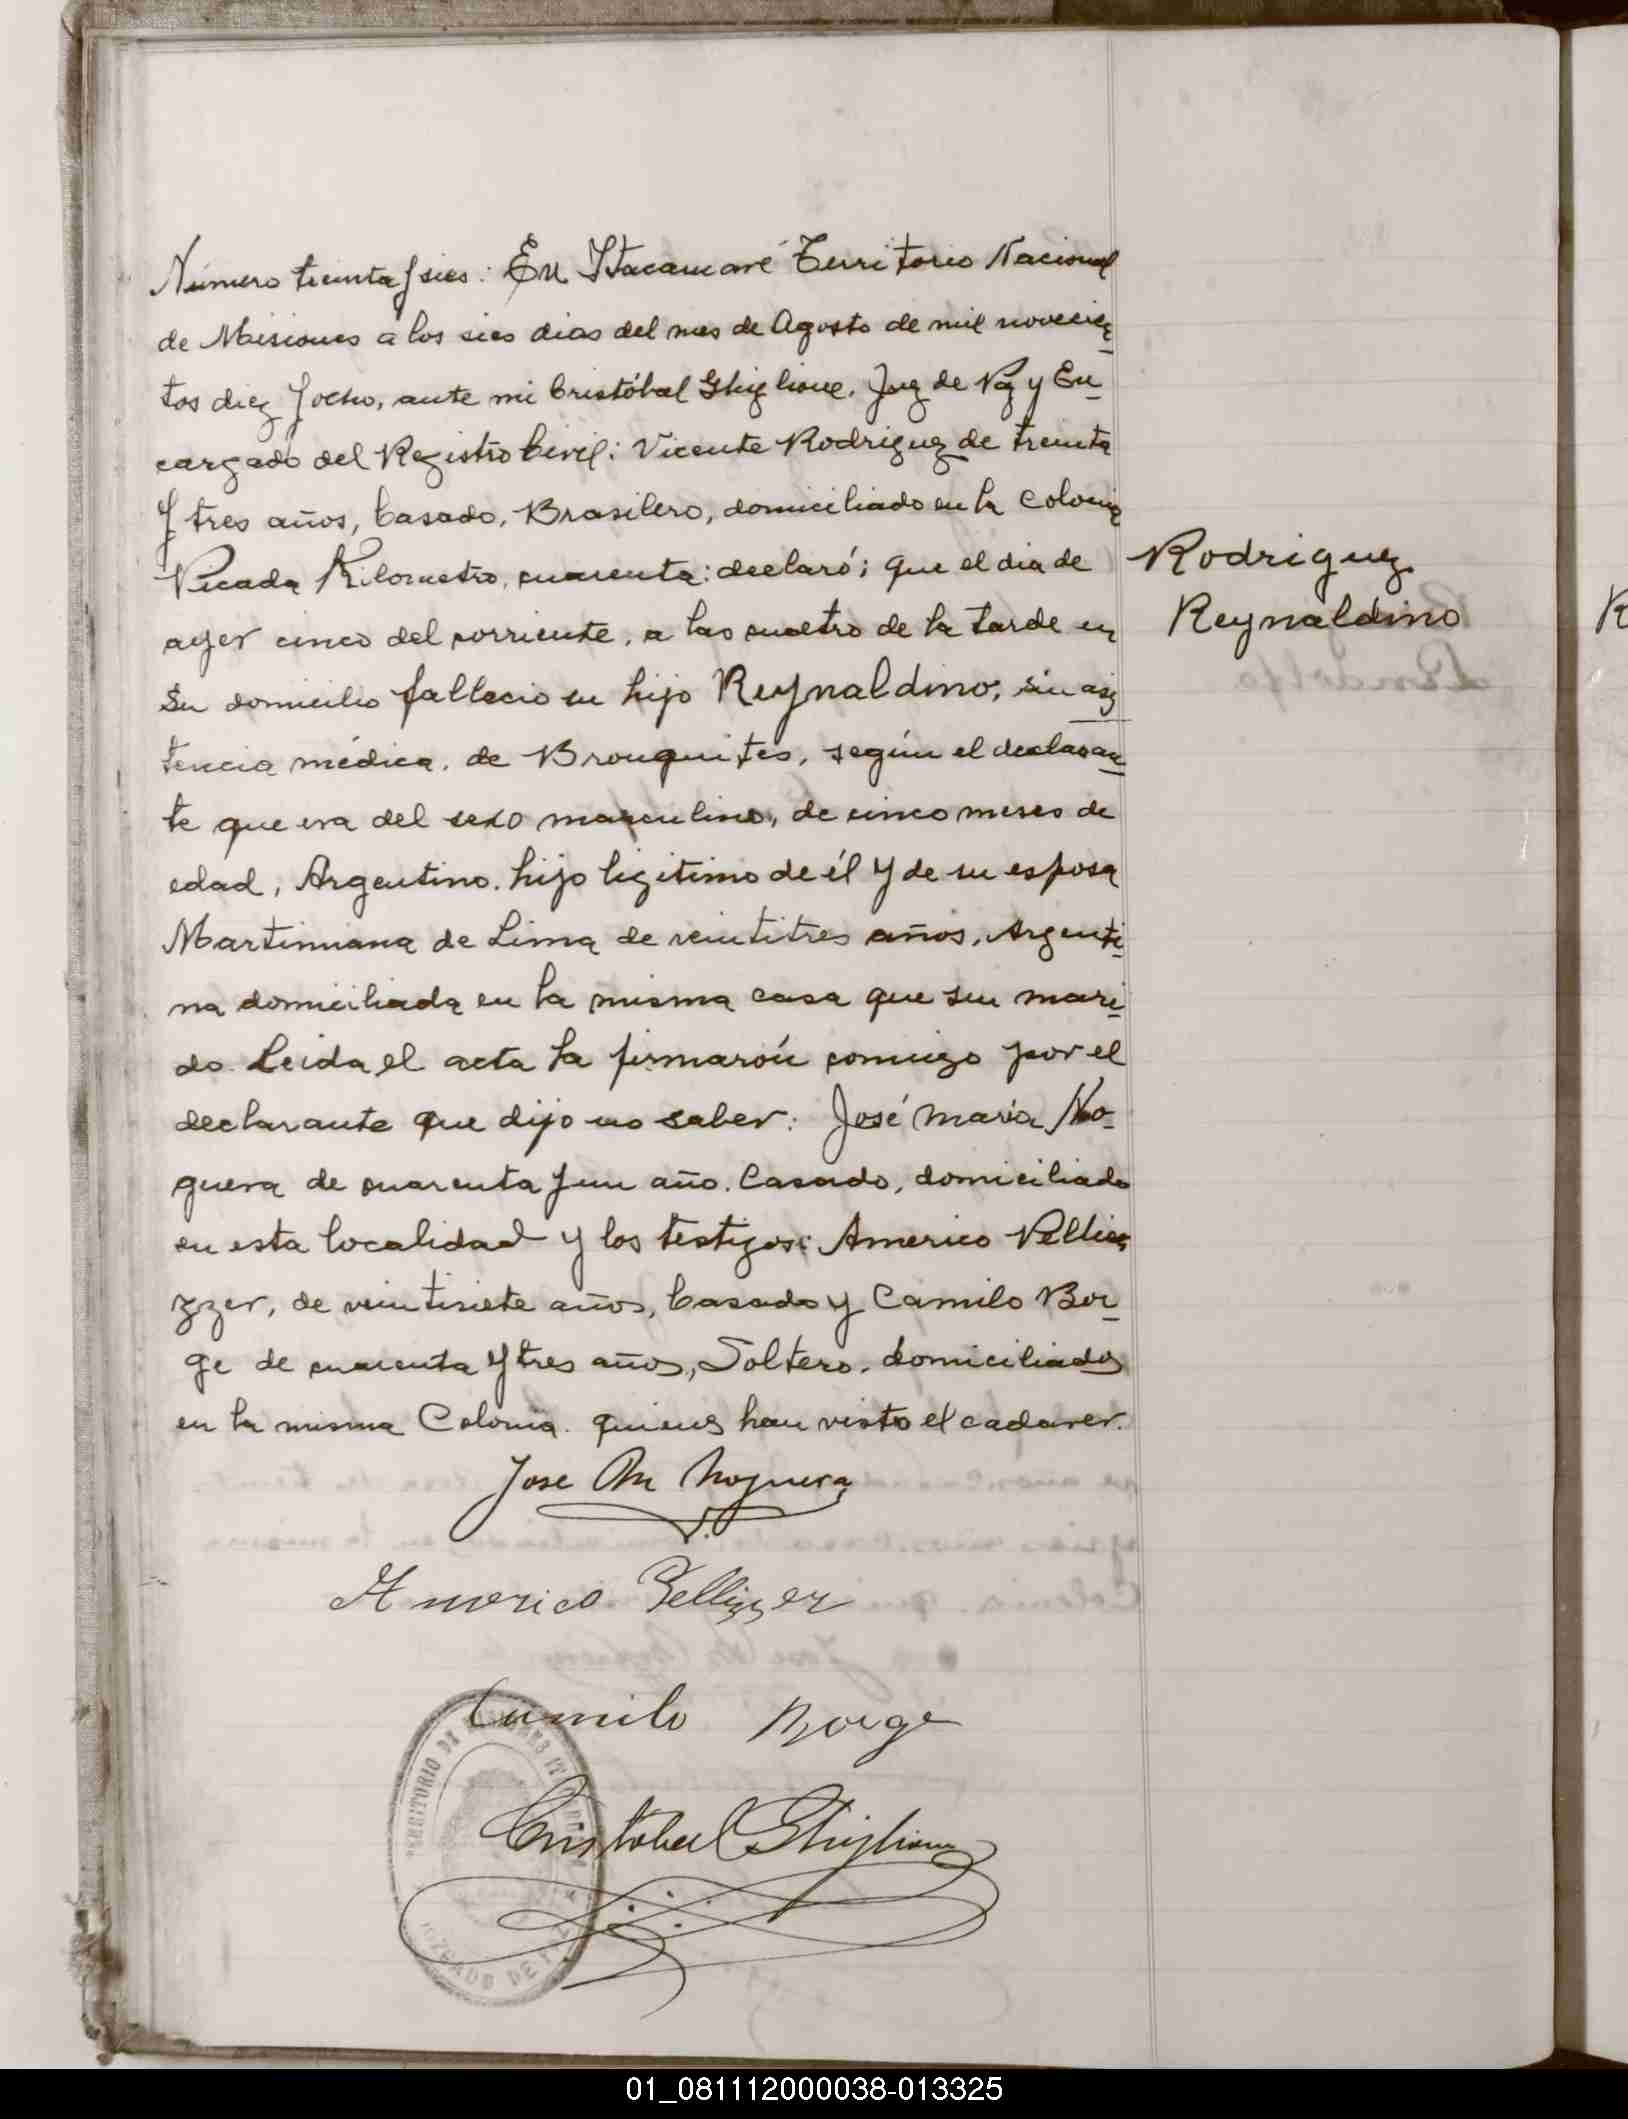 Número treinta y seis: En Itacaruaré Territorio Nacional
de Misiones a los seis dias del mes de Agosto de mil novecien
tos diez y ocho, ante mi Cristóbal Ghiglione, Juez de Paz y En-
cargado del Registro Civil: Vicente Rodriguez de treinta
y tres años, Casado, Brasilero, domiciliado en la Colonia
Picada Kilometro, cuarenta: declaró; que el dia de
ayer cinco del corriente, a las cuatro de la tarde en
su domicilio fallecio su hijo Reynaldino, sin asis
tencia médica, de Bronquites, según el declaran
te que era del sexo masculino, de cinco meses de
edad, Argentino. hijo ligitimo de él y de su esposa
Martinиana de Lima de veintitres años, Argenti
na domiciliada en la misma casa que su mari
do. Leida el acta la firmarón comigo por el
declarante que dijo no saber: José Maria No-
guera de cuarenta y un año. Casado, domiciliado
en esta localidad y los testigos: Americo Pelli
zzer, de veintisiete años, Casado y Camilo Bor-
ge de cuarenta y tres años, Soltero, domiciliados
en la misma Colonia. quienes han visto el cadaver.
Rodriguez
Reynaldino
R
Jose M Noguera
Americo Pellizzer
Camilo Borge
Cristobal Ghiglione
TERRITORIO DE
JUZGADO DE PAZ
01_081112000038-013325